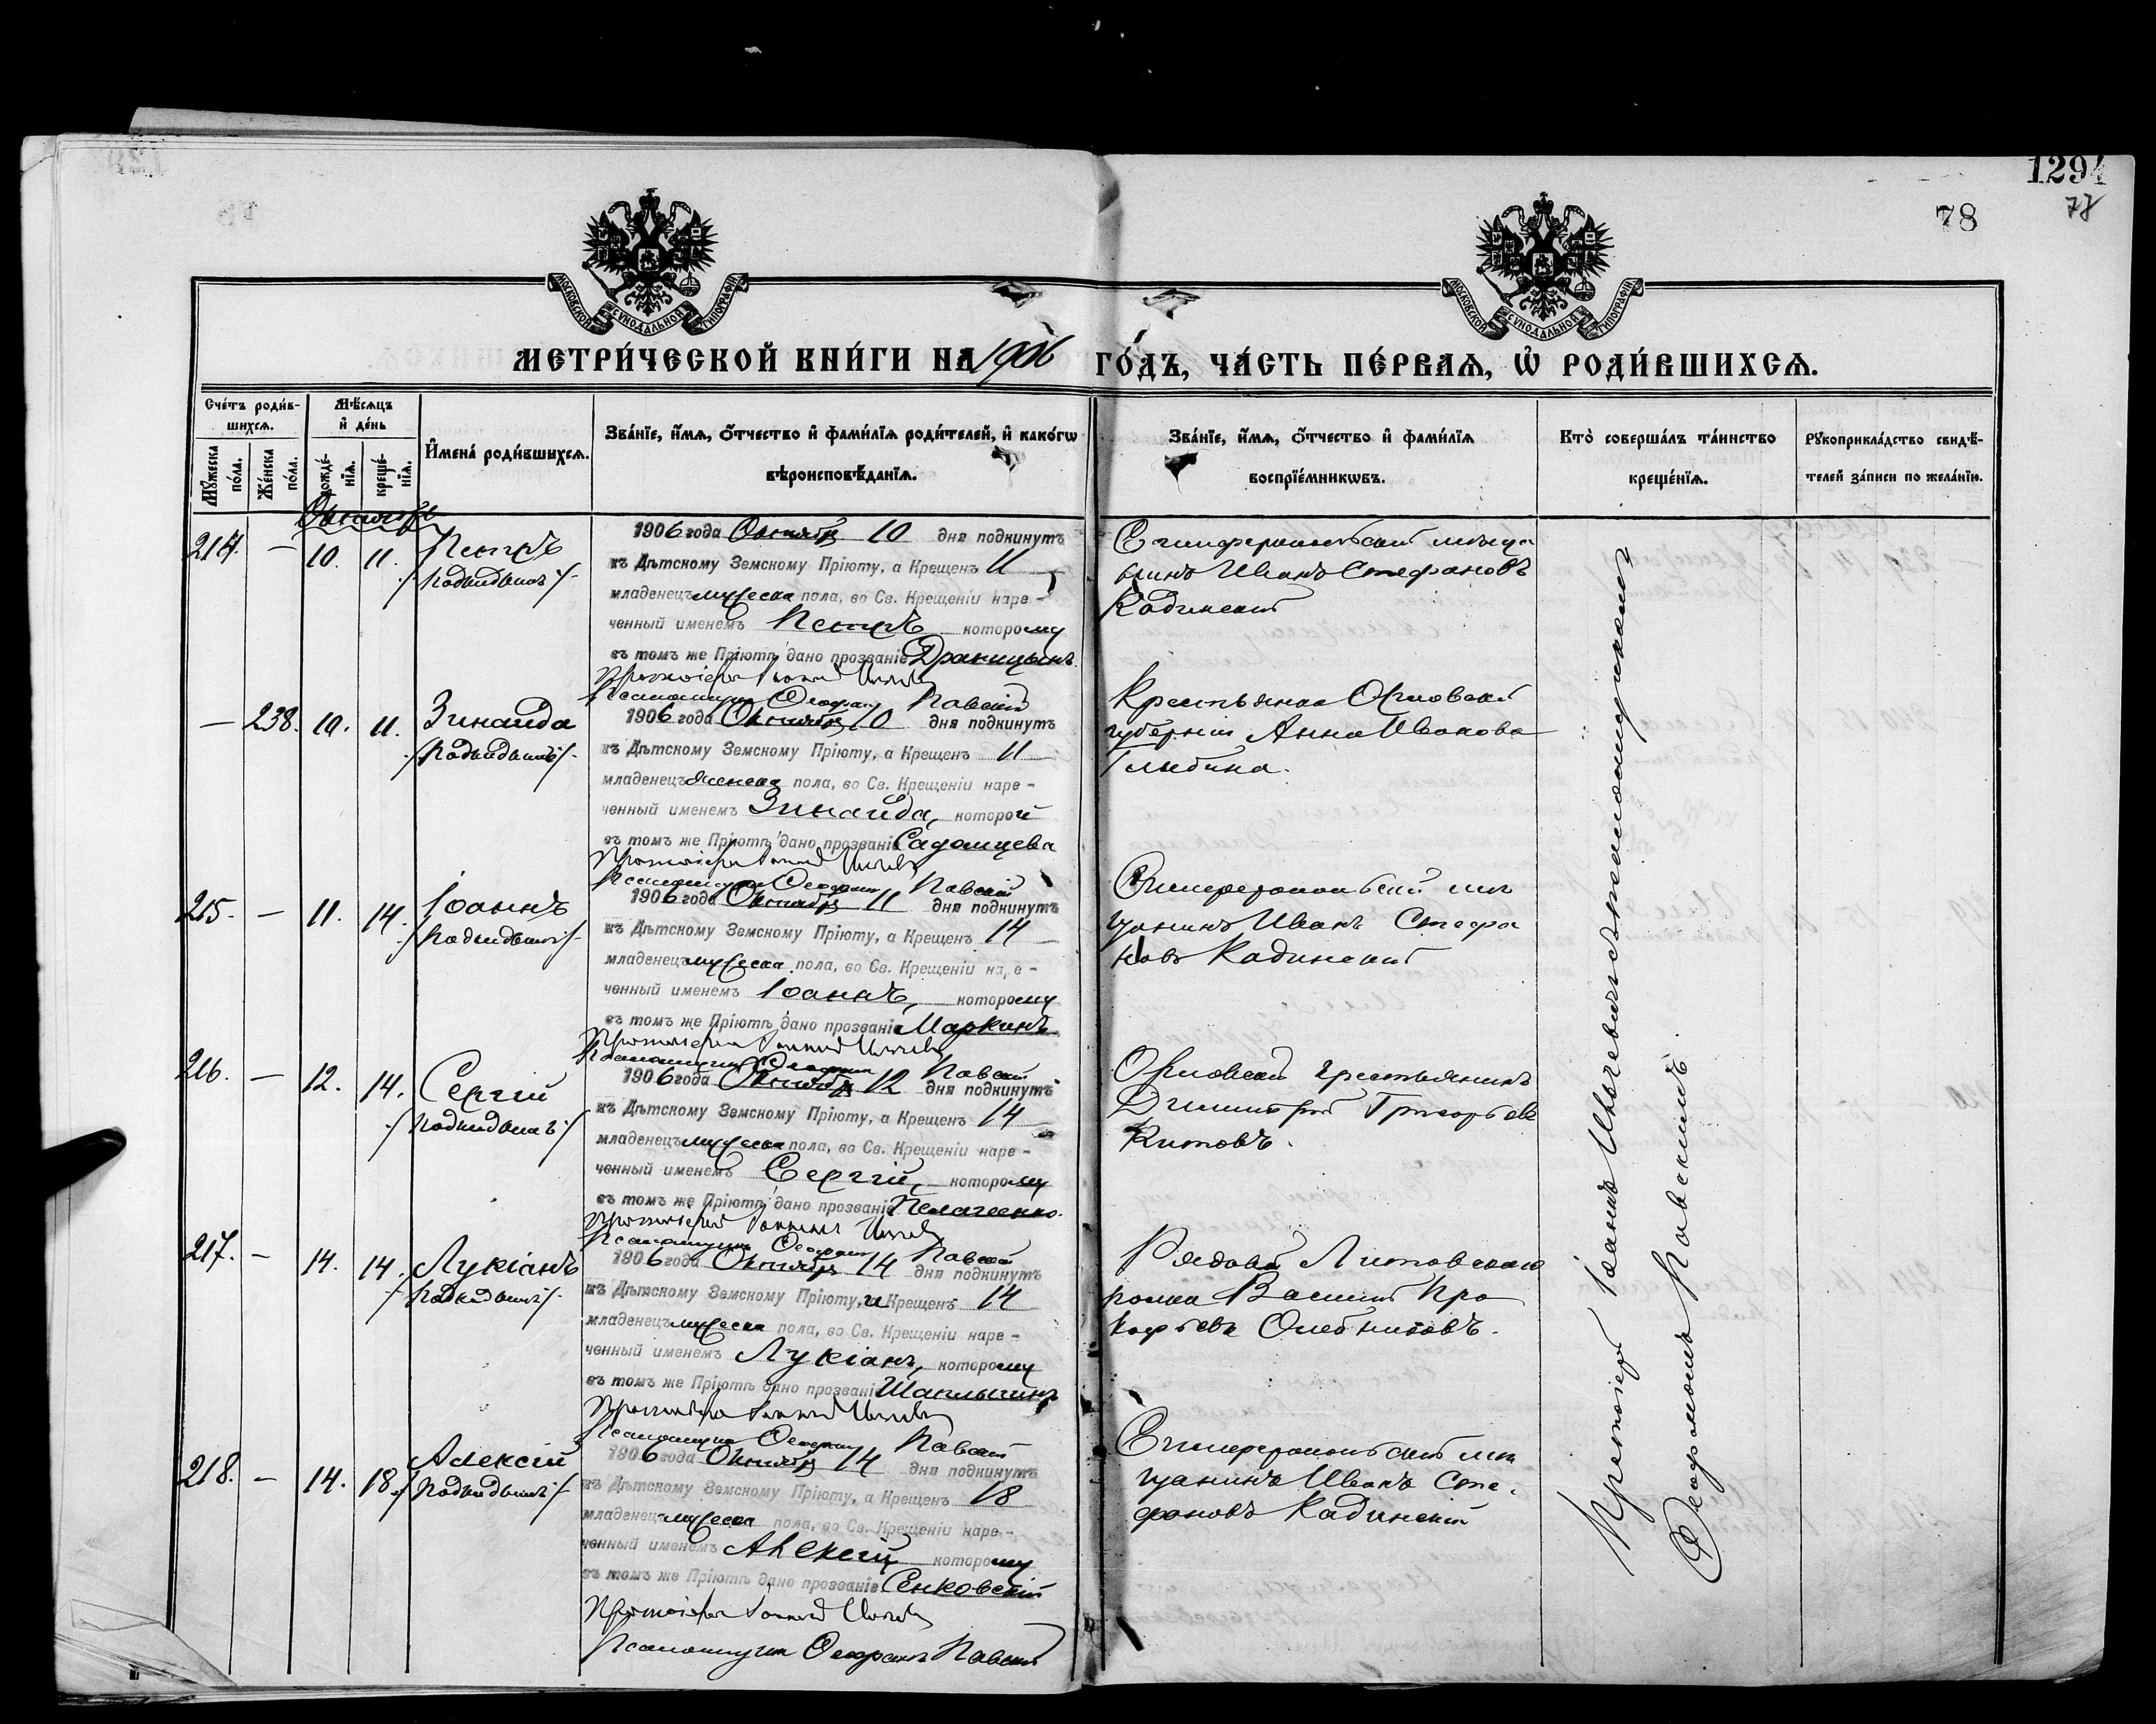 1294
78
78
МОСКОВСКОЙ СѴНОДАЛЬНОЙ ТИПОГРАФІИ
МОСКОВСКОЙ СѴНОДАЛЬНОЙ ТИПОГРАФІИ
МЕТРИ́ЧЕСКОЙ КНИ́ГИ НА 1906 ГО́ДЪ, ЧА́СТЬ ПЕ́РВАѦ, Ѡ҆ РОДИ́ВШИХСѦ.
Сче́тъ роди́в-
шихсѧ.
Мꙋжеска по́ла.
Же́нска по́ла.
Мѣ́сѧцъ
и҆ де́нь
рожде́-нїѧ.
креще́-нїѧ.
И҆мена̀ роди́вшихсѧ.
Зва́нїе, и҆́мѧ, ѻ҆́тчество и҆ фами́лїѧ роди́телей, и҆ како́гѡ
вѣроисповѣ́данїѧ.
Зва́нїе, и҆́мѧ, ѻ҆́тчество и҆ фами́лїѧ
воспрїе́мникѡвъ.
Кто̀ соверша́лъ та́инство
креще́нїѧ.
Рꙋкоприкла́дство свидѣ́-
телей за́писи по жела́нїю.
Октябрь
214. — 10. 11. Петръ
/Подкидышъ/
1906 года Октября 10 дня подкинутъ
къ Дѣтскому Земскому Пріюту, а Крещенъ 11
младенецъ мужеска пола, во Св. Крещеніи наре-
ченный именемъ Петръ которому
въ томъ же Пріютѣ дано прозваніе Дракицынъ.
Протоіерей Іоаннъ
Псаломщикъ Ѳеофанъ Павскій
Симферопольскій мѣща
нинъ Иванъ Стефановъ
Кадинскій
— 238. 10. 11. Зинаида
/Подкидышъ/
1906 года Октября 10 дня подкинутъ
къ Дѣтскому Земскому Пріюту, а Крещенъ 11
младенецъ женска пола, во Св. Крещеніи наре-
ченный именемъ Зинаида, которой
въ томъ же Пріютѣ дано прозваніе Садомцева
Протоіерей Іоаннъ
Псаломщикъ Ѳеофанъ Павскій
Крестьянка Орловской
губерніи Анна Иванова
215. — 11. 14. Іоаннъ
/Подкидышъ/
1906 года Октября 11 дня подкинутъ
къ Дѣтскому Земскому Пріюту, а Крещенъ 14
младенецъ мужеска пола, во Св. Крещеніи наре-
ченный именемъ Іоаннъ, которому
въ томъ же Пріютѣ дано прозваніе Маркинъ
Протоіерей Іоаннъ
Псаломщикъ Ѳеофанъ Павскій
Симферопольскій мѣ
щанинъ Иванъ Стефа
новъ Кадинскій
216. — 12. 14. Сергій
/Подкидышъ/
1906 года Октября 12 дня подкинутъ
къ Дѣтскому Земскому Пріюту, а Крещенъ 14
младенецъ мужеска пола, во Св. Крещеніи наре-
ченный именемъ Сергій, которому
въ томъ же Пріютѣ дано прозваніе
Протоіерей Іоаннъ
Псаломщикъ Ѳеофанъ Павскій
Орловскій крестьянинъ
Димитрій Григорьевъ
Китовъ.
217. — 14. 14. Лукіанъ
/Подкидышъ/
1906 года Октября 14 дня подкинутъ
къ Дѣтскому Земскому Пріюту, и Крещенъ 14
младенецъ мужеска пола, во Св. Крещеніи наре-
ченный именемъ Лукіанъ, которому
въ томъ же Пріютѣ дано прозваніе
Протоіерей Іоаннъ
Псаломщикъ Ѳеофанъ Павскій
Рядовой Литовскаго
полка Василій Про
кофьевъ
218. — 14. 18. Алексій
/Подкидышъ/
1906 года Октября 14 дня подкинутъ
къ Дѣтскому Земскому Пріюту, а Крещенъ 18
младенецъ мужеска пола, во Св. Крещеніи наре-
ченный именемъ Алексій которому
въ томъ же Пріютѣ дано прозваніе Сенковскій
Протоіерей Іоаннъ
Псаломщикъ Ѳеофанъ Павскій
Симферопольскій мѣ
щанинъ Иванъ Сте
фановъ Кадинскій
Протоіерей Іоаннъ съ псаломщикомъ
Ѳеофаномъ Павскимъ.